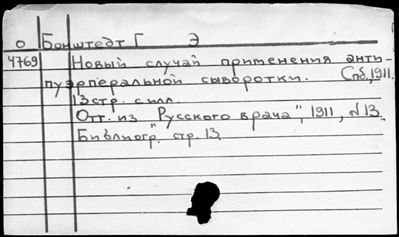 О Бонштедт Г Э
4769 Новый случай применения анти-
пуэрперальной сыворотки. Спб, 1911.
13 стр. с илл.
Отт. из "Русского врача", 1911, №13.
Библиогр. стр. 13